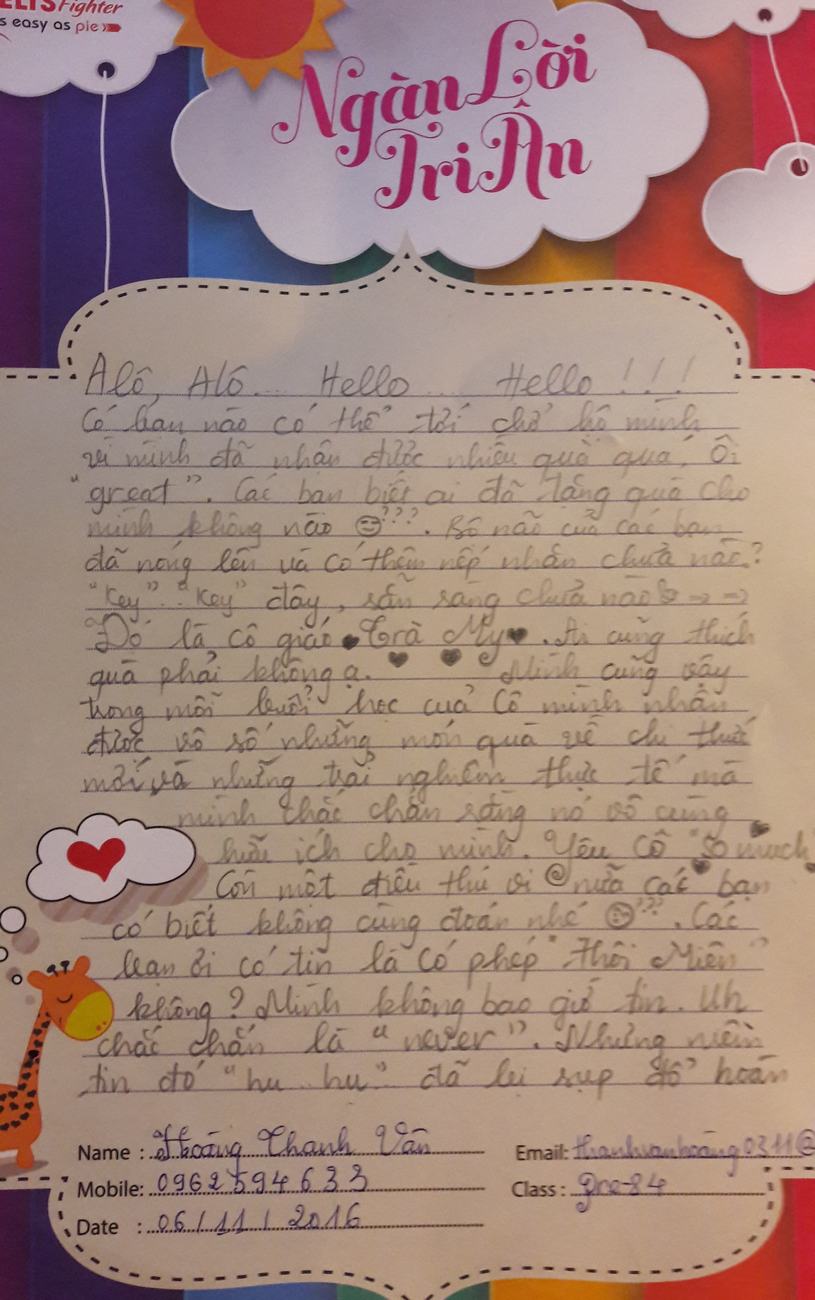 ELTS Fighter
s easy as pie
Ngàn Lời
Tri Ân
Alô, Alô... Hello... Hello!!!
Có bạn nào có thể tới chở hộ mình
vì mình đã nhận được nhiều quà quá, Ôi
"great". Các bạn biết ai đã tặng quà cho
mình không nào ☺???. Bộ não của các bạn
đã nóng lên và có thêm nếp nhăn chưa nào?
"Key".."Key" đây, sẵn sàng chưa nào → →
Đó là cô giáo ♥Trà My♥. Ai cũng thích
quà phải không ạ. ♥ ♥ Mình cũng vậy
trong mỗi buổi học của Cô mình nhận
được vô số những món quà về chi thức
mới và những trải nghiệm thực tế mà
mình chắc chắn rằng nó vô cùng
hữu ích cho mình. Yêu Cô "So much
Còn một điều thú vị nữa các bạn
có biết không cùng đoán nhé ☺??. Các
bạn ơi có tin là có phép "Thôi Miên"
không? Mình không bao giờ tin. Uh
chắc chắn là "never". Nhưng niềm
tin đó "hu..hu" đã bị sụp đổ hoàn
Name : Hoàng Thanh Vân Email: thanhvanhoang0311@
Mobile: 0962594633 Class : Pre-84
Date : 06/11/2016